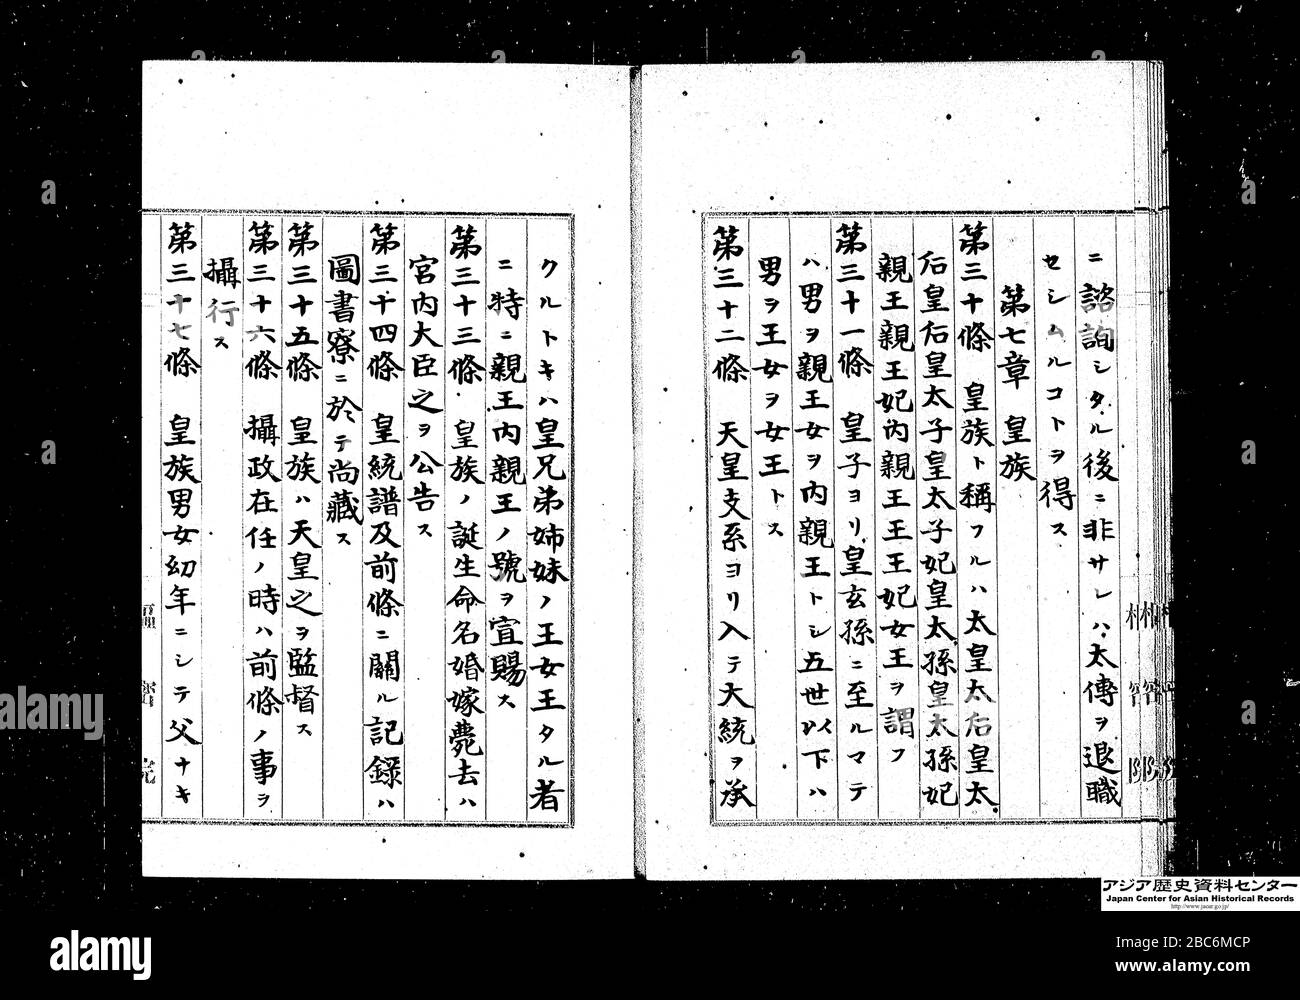 ニ諮詢シタル後ニ非サレハ太傳ヲ退職
セシムルコトヲ得ス
第七章 皇族
第三十條 皇族ト稱フルハ太皇太后皇太
后皇后皇太子皇太子妃皇太孫皇太孫妃
親王親王妃內親王王王妃女王ヲ謂フ
第三十一條 皇子ヨリ皇玄孫ニ至ルマテ
ハ男ヲ親王女ヲ內親王トシ五世以下ハ
男ヲ王女ヲ女王トス
第三十二條 天皇支系ヨリ入テ大統ヲ承
クルトキハ皇兄弟姉妹ノ王女王タル者
ニ特ニ親王內親王ノ號ヲ宣賜ス
第三十三條 皇族ノ誕生命名婚嫁薨去ハ
宮內大臣之ヲ公告ス
第三十四條 皇統譜及前條ニ關ル記錄ハ
圖書寮ニ於テ尚藏ス
第三十五條 皇族ハ天皇之ヲ監督ス
第三十六條 攝政在任ノ時ハ前條ノ事ヲ
攝行ス
第三十七條 皇族男女幼年ニシテ父ナキ
樞密院
アジア歴史資料センター
Japan Center for Asian Historical Records
http://www.jacar.go.jp/
a
a
a
a
alamy
a
a
alamy
Image ID: 2BC6MCP
www.alamy.com